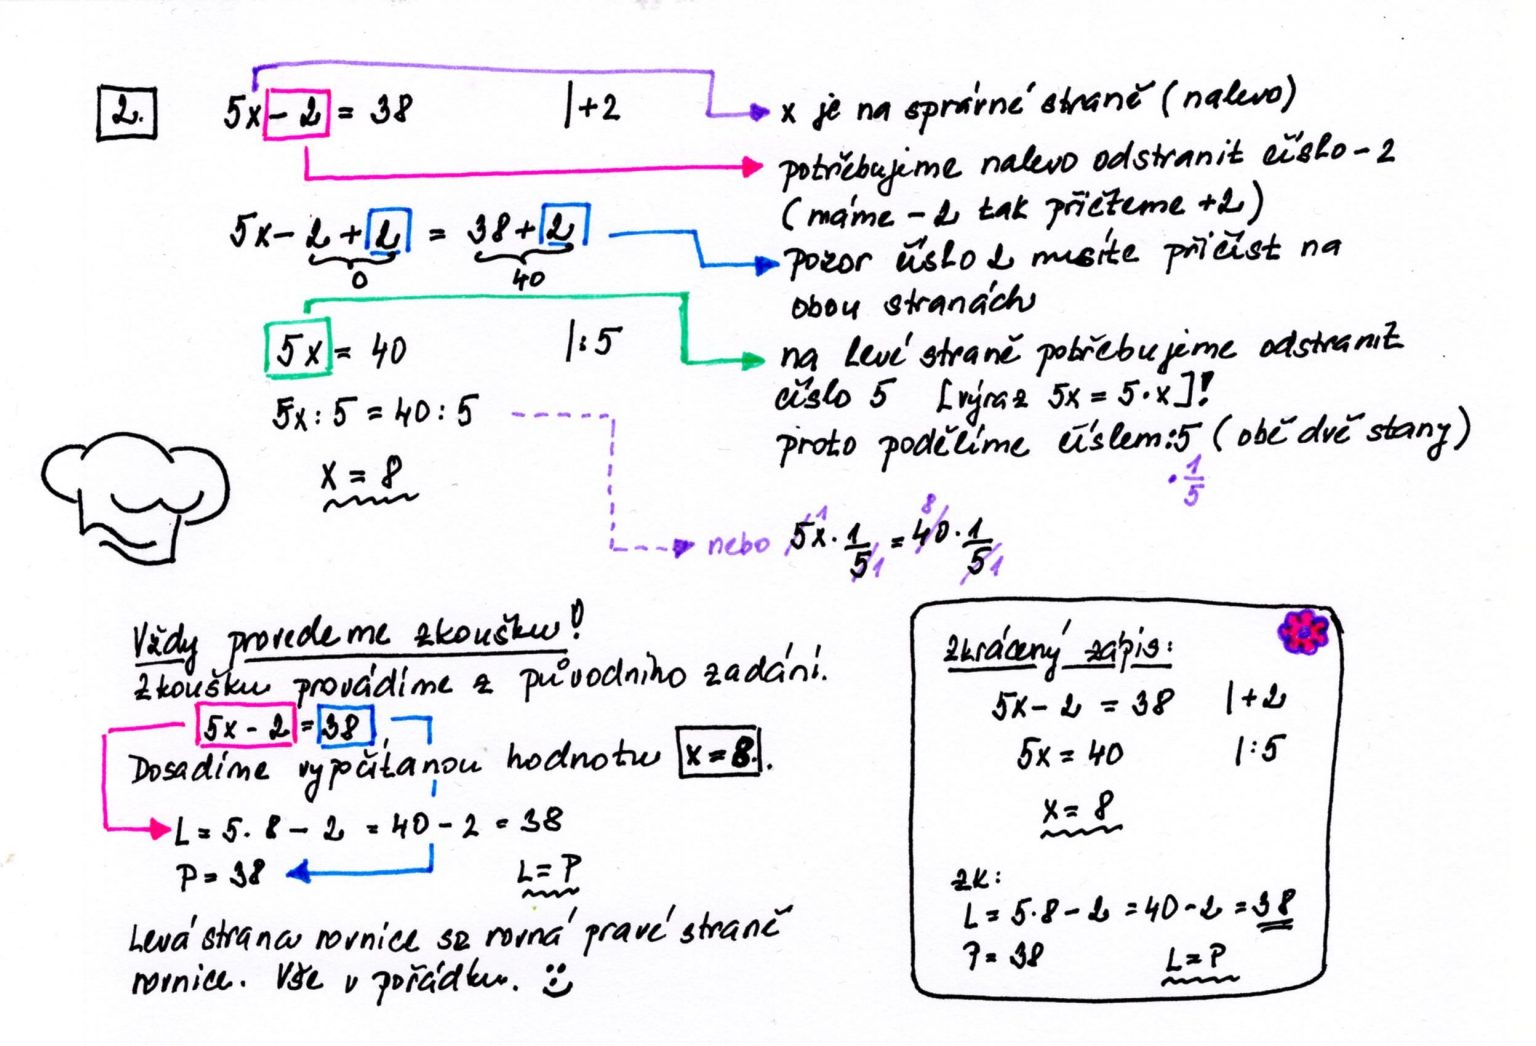 2. 5x - 2 = 38 |+2
x je na správné straně (nalevo)
potřebujeme nalevo odstranit číslo - 2
(máme - 2 tak přičteme +2)
5x - 2 + 2 = 38 + 2
0 40
pozor číslo 2 musíte přičíst na
obou stranách
5x = 40 |:5
na levé straně potřebujeme odstranit
číslo 5 [výraz 5x = 5·x]!
5x : 5 = 40 : 5
proto podělíme číslem :5 (obě dvě stany)
· 1/5
x = 8
nebo 5x · 1/5 = 40 · 1/5
1 1 8 1
Vždy provedeme zkoušku!
Zkoušku provádíme z původního zadání.
5x - 2 = 38
Dosadíme vypočítanou hodnotu x = 8.
L = 5. 8 - 2 = 40 - 2 = 38
P = 38 L = P
Levá strana rovnice se rovná pravé straně
rovnice. Vše v pořádku.
Zkrácený zápis:
5x - 2 = 38 |+2
5x = 40 |:5
x = 8
ZK:
L = 5·8 - 2 = 40 - 2 = 38
P = 38 L = P